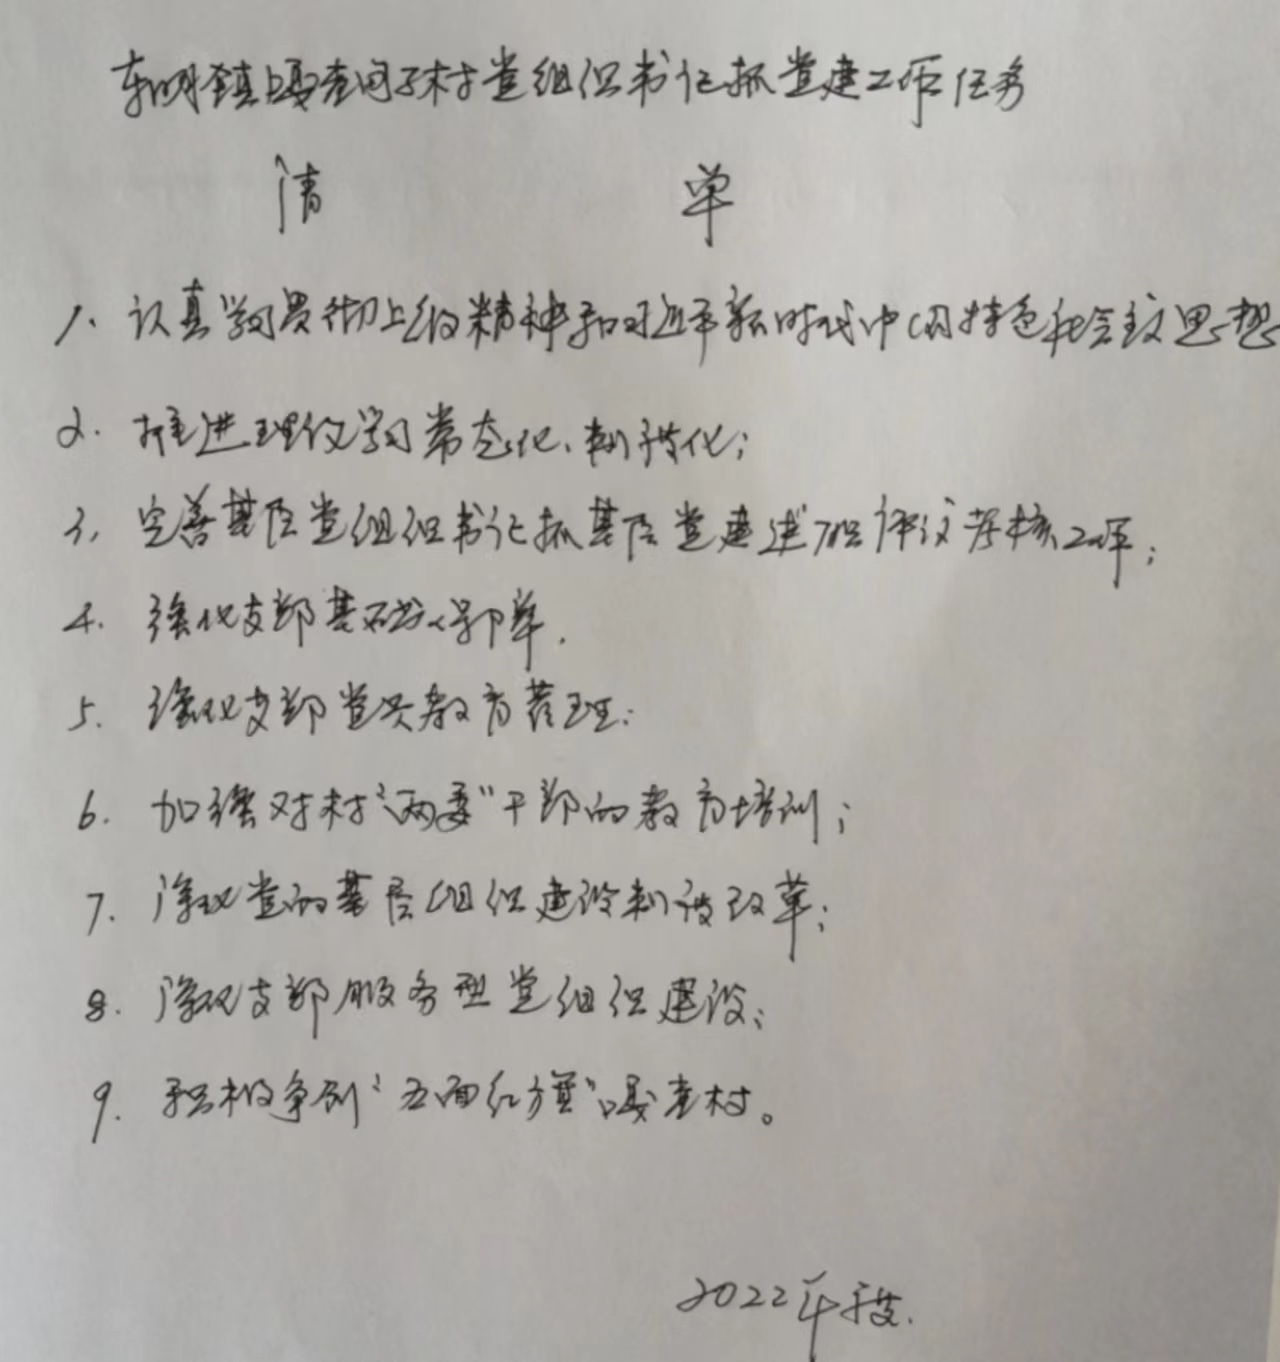 东明镇嘎查网子村党组织书记抓党建工作任务
清 单
1、认真学习贯彻上级精神和习近平新时代中国特色社会主义思想
2. 推进理论学习常态化、制度化;
3, 完善基层党组织书记抓基层党建述职评议考核工作;
4. 强化支部基础保障.
5. 强化支部党员教育管理;
6. 加强对村“两委”干部的教育培训;
7. 深化党的基层组织建设制度改革;
8. 深化支部服务型党组织建设;
9. 积极争创“五面红旗”嘎查村。
2022年度.